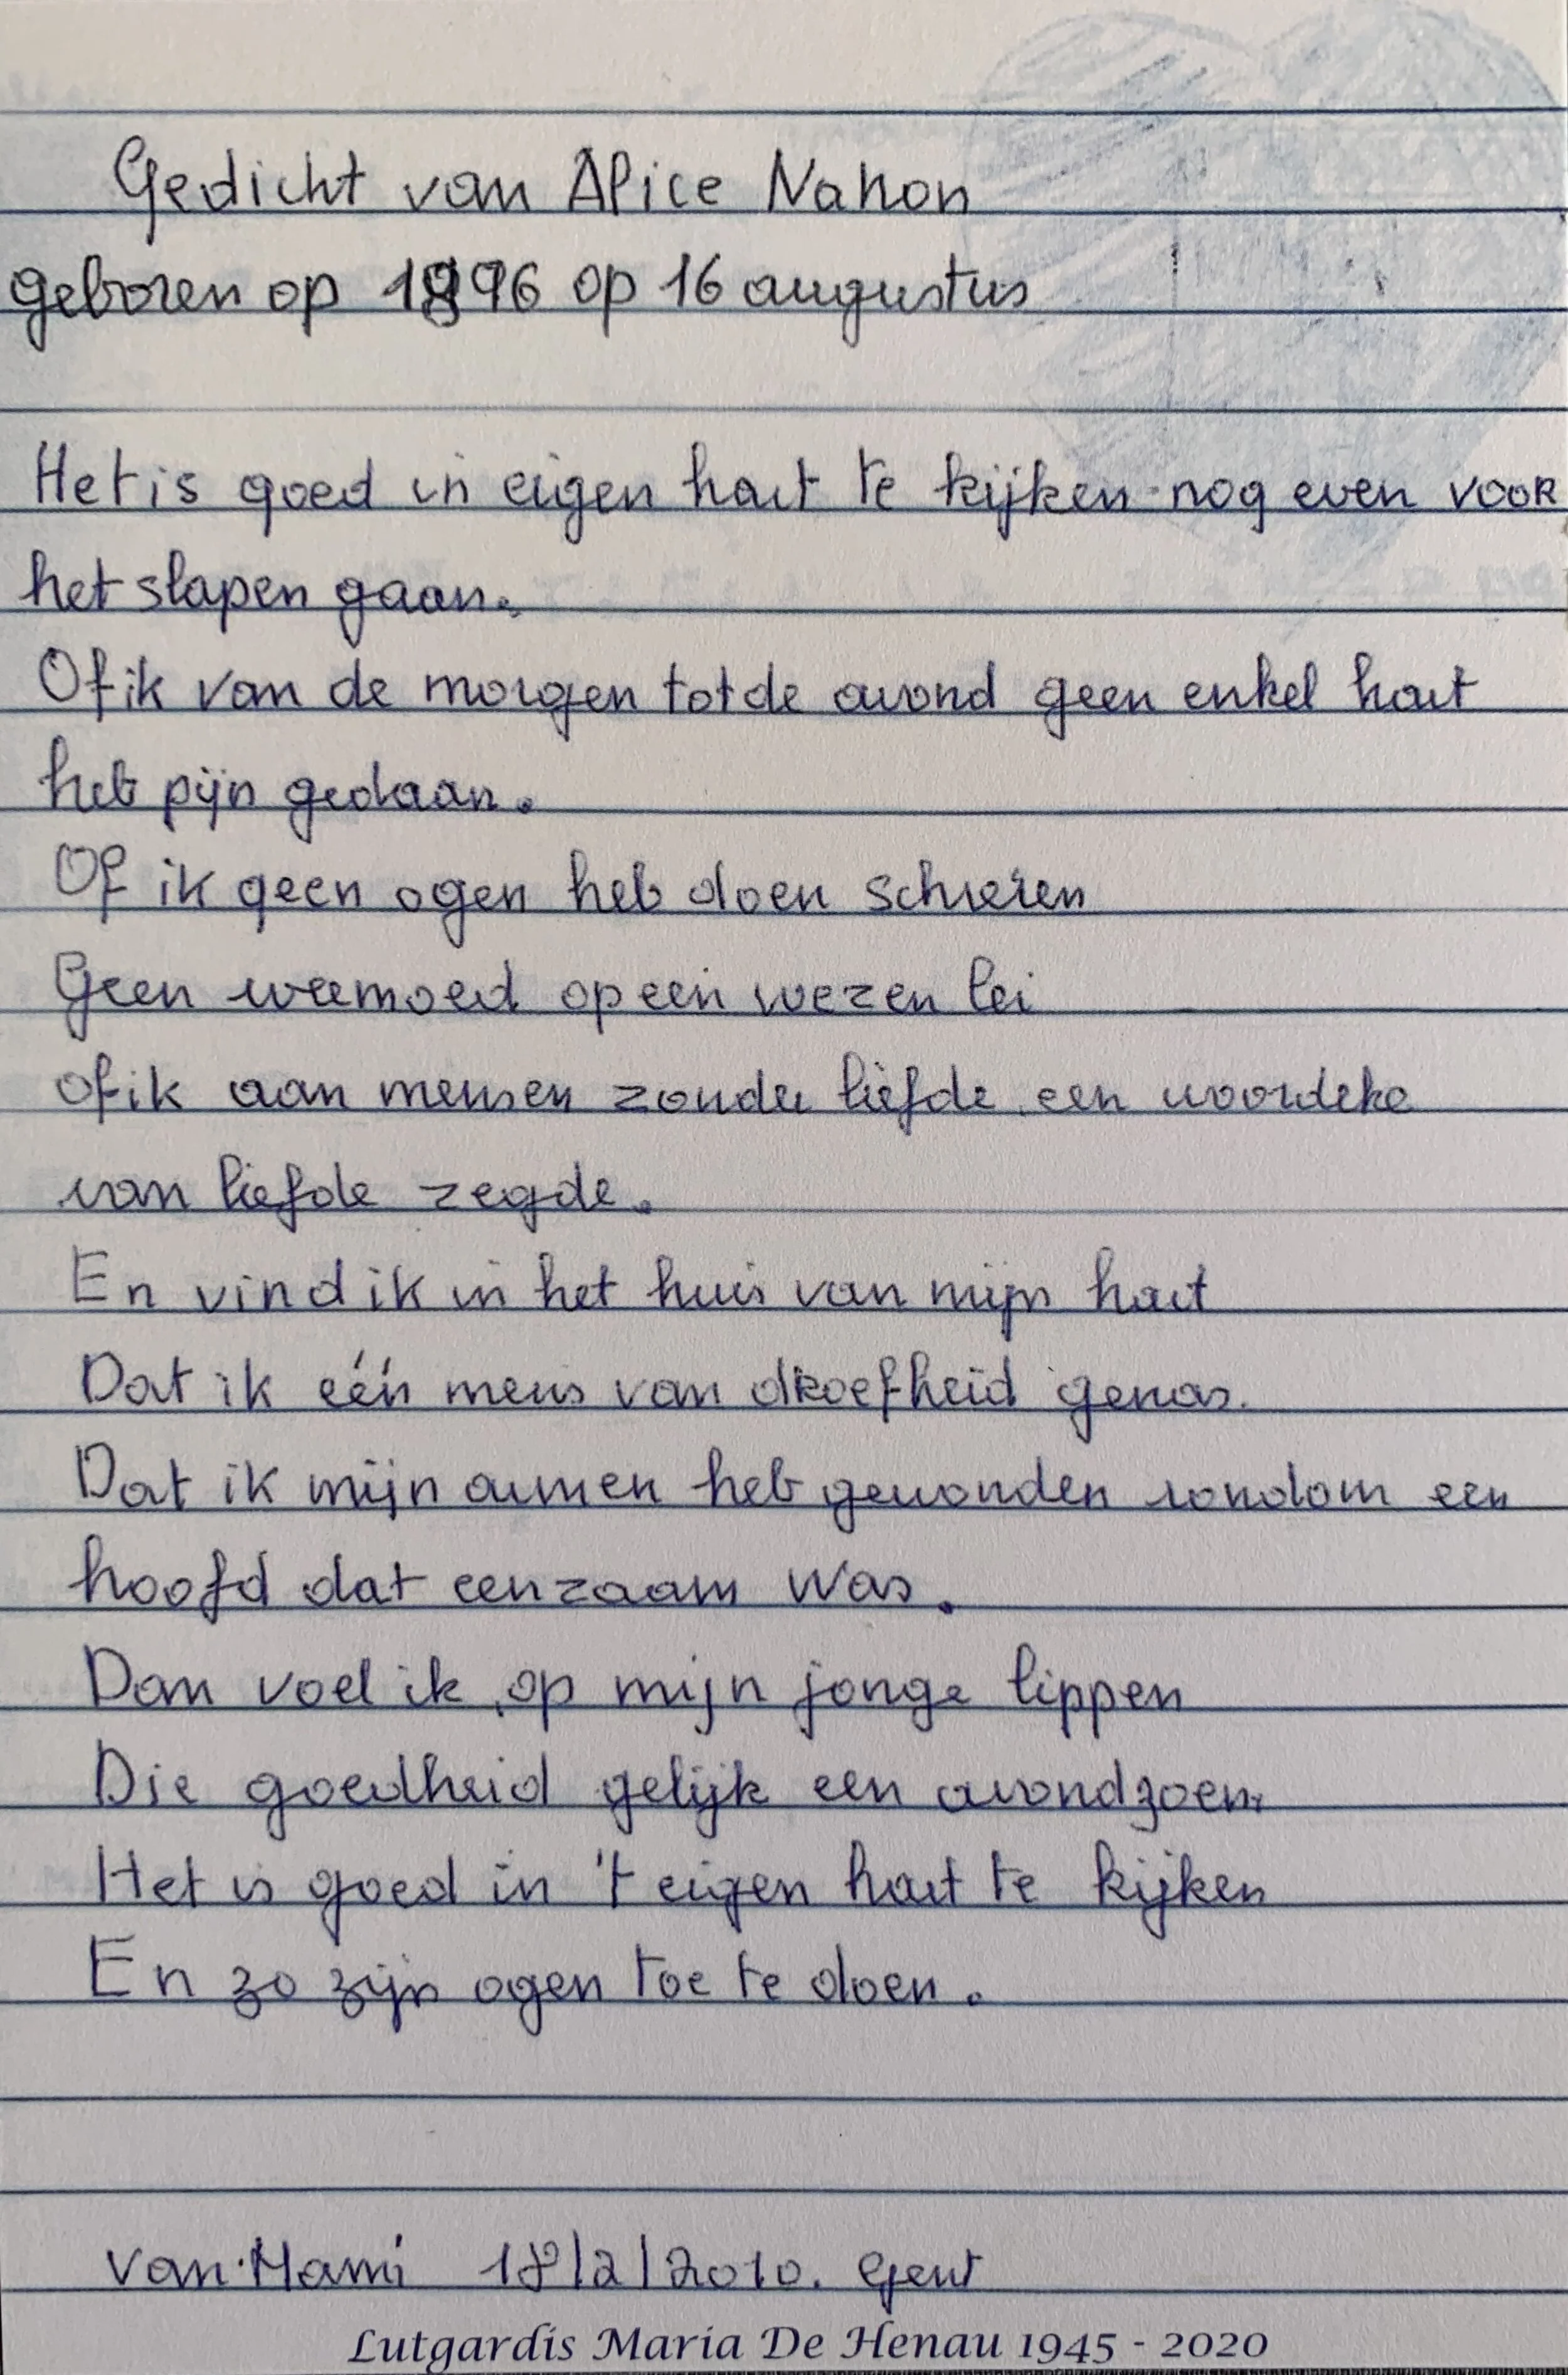 Gedicht van Alice Nahon
geboren op 1896 op 16 augustus
Het is goed in eigen hart te kijken nog even voor
het slapen gaan.
Of ik van de morgen tot de avond geen enkel hart
heb pijn gedaan.
Of ik geen ogen heb doen schreien
Geen weemoed op een wezen lei
of ik aan mensen zonder liefde een woordeke
van liefde zegde.
En vind ik in het huis van mijn hart
Dat ik één mens van droefheid genas.
Dat ik mijn armen heb gewonden rondom een
hoofd dat eenzaam was.
Dan voel ik op mijn jonge lippen
Die goedheid gelijk een avondzoen.
Het is goed in 't eigen hart te kijken
En zo zijn ogen toe te doen.
Van Mami 18/2/2010. Gent
Lutgardis Maria De Henau 1945 - 2020